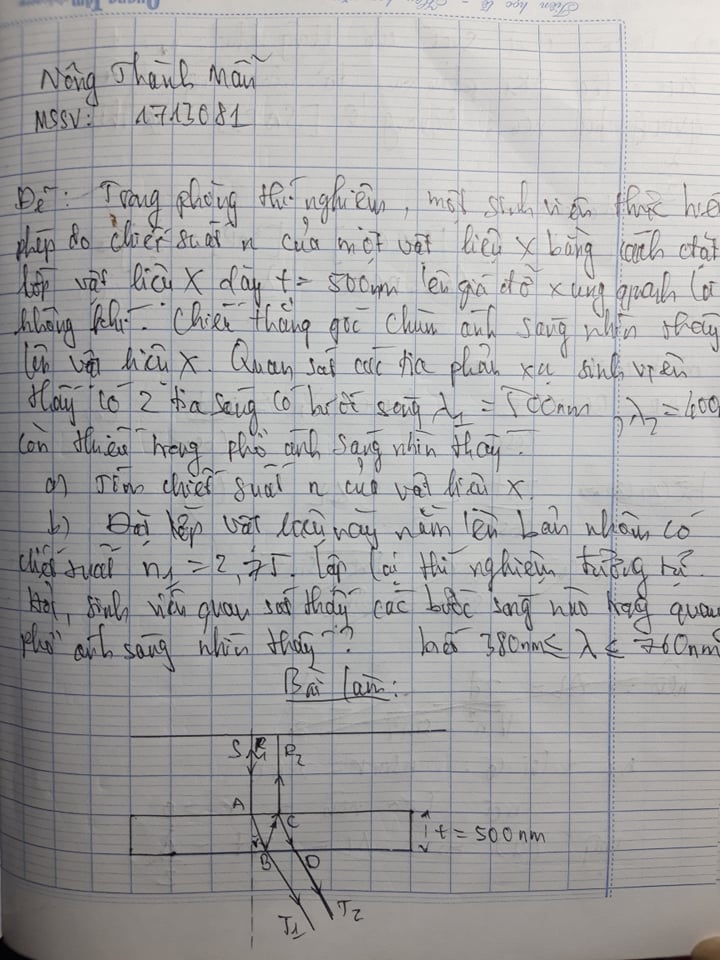 Nông Thành Mẫn
MSSV: 1713081
Đề: Trong phòng thí nghiệm, một sinh viên thực hiệ
phép đo chiết suất n của một vật liệu X bằng cách đặt
lớp vật liệu X dày t = 500nm lên giá đỡ xung quanh là
không khí. Chiếu thẳng góc chùm ánh sáng nhìn thấy
lên vật liệu X. Quan sát các tia phản xạ sinh viên
thấy có 2 tia sáng có bước sóng λ1 = 500nm, λ2 = 400
còn thiếu trong phổ ánh sáng nhìn thấy.
a) Tìm chiết suất n của vật liệu X.
b) Đặt lớp vật liệu này nằm lên bản nhôm có
chiết suất n1 = 2,75. Lặp lại thí nghiệm tương tự.
Hỏi, sinh viên quan sát thấy các bước sóng nào trong quan
phổ ánh sáng nhìn thấy? 380nm ≤ λ ≤ 760nm
Bài làm:
S R1 R2
A C
t = 500nm
B D
T1 T2